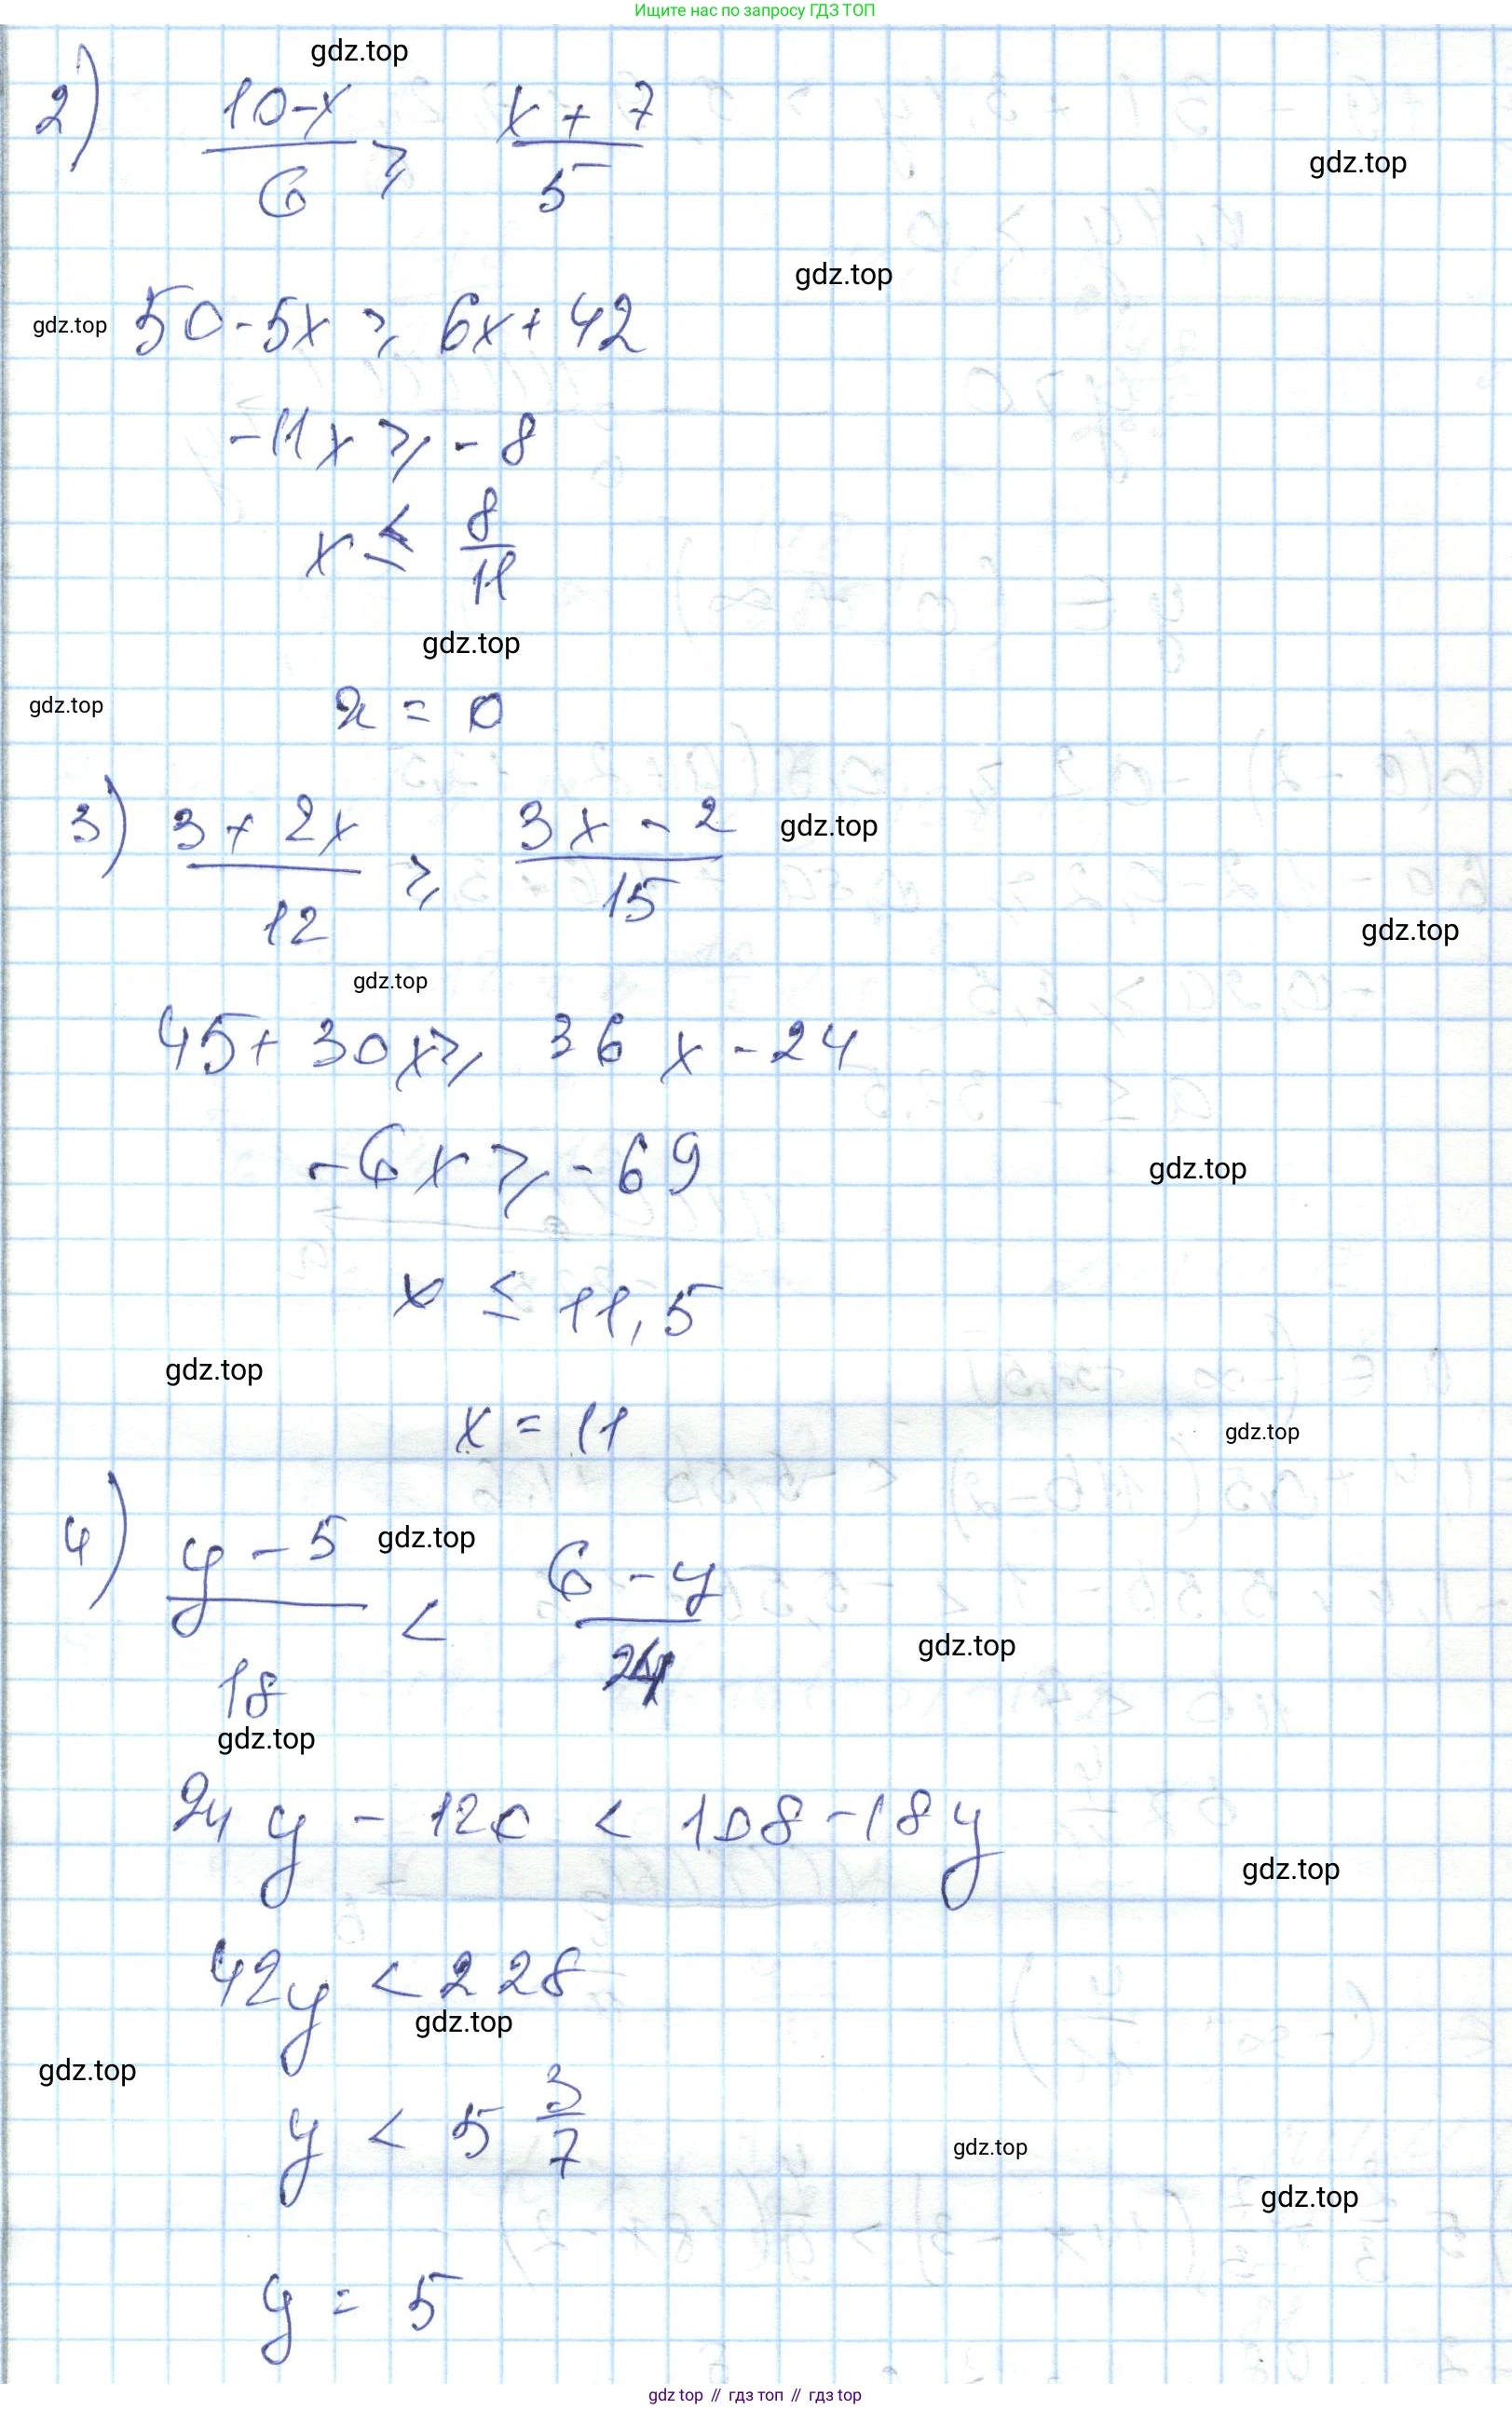 Ищите нас по запросу ГДЗ ТОП
gdz.top
2) (10-x)/6 ⩾ (x + 7)/5
gdz.top
gdz.top
gdz.top 50-5x ⩾ 6x + 42
-11x ⩾ - 8
x ≤ 8/11
gdz.top
gdz.top
x = 0
3) (3 + 2x)/12 ⩾ (3x - 2)/15 gdz.top
gdz.top
gdz.top
45 + 30x ⩾ 36x - 24
-6x ⩾ -69
gdz.top
x ≤ 11,5
gdz.top
x = 11
gdz.top
4) (y - 5)/18 < (6 - y)/24
gdz.top
gdz.top
gdz.top
24y - 120 < 108 - 18y
gdz.top
42y < 228
gdz.top
gdz.top
y < 5 3/7
gdz.top
gdz.top
y = 5
gdz top // гдз топ // gdz top